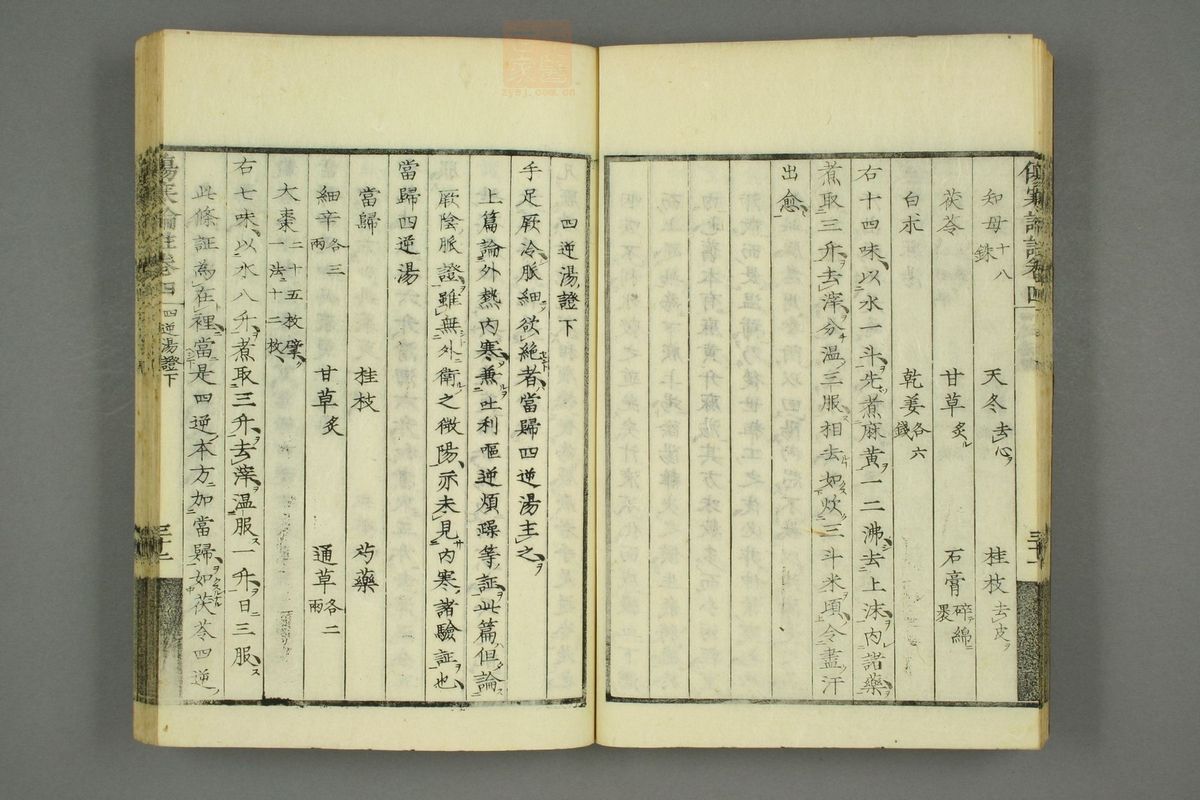 知母十八銖 天冬去心 桂枝去皮
茯苓 甘草炙 石膏碎綿裹
白朮 乾姜各六錢
右十四味以水一斗先煮麻黃一二沸去上沫內諸藥
煮取三升去滓分溫三服相去如炊三斗米頃令盡汗
出愈
四逆湯證下
手足厥冷脈細欲絶者當歸四逆湯主之
上篇論外熱內寒兼吐利嘔逆煩躁等証此篇但論
厥陰脈證雖無外衛之微陽亦未見內寒諸驗証也
當歸四逆湯
當歸 桂枝 芍藥
細辛各三兩 甘草炙 通草各二兩
大棗二十五枚擘一法十二枚
右七味以水八升煮取三升去滓溫服一升日三服
此條証為在裡當是四逆本方加當歸如茯苓四逆
傷寒論註卷四 四逆湯證下 三十二
zysj.com.cn